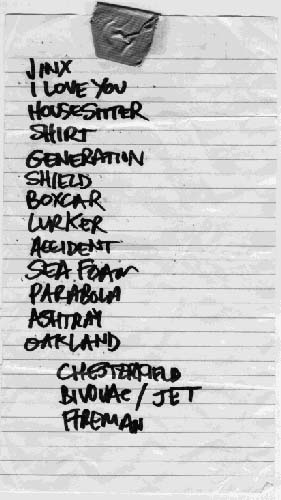 JINX
I LOVE YOU
HOUSESITTER
SHIRT
GENERATION
SHIELD
BOXCAR
LURKER
ACCIDENT
SEA FOAM
PARABOLA
ASHTRAY
OAKLAND
CHESTERFIELD
BIVOUAC / JET
FIREMAN